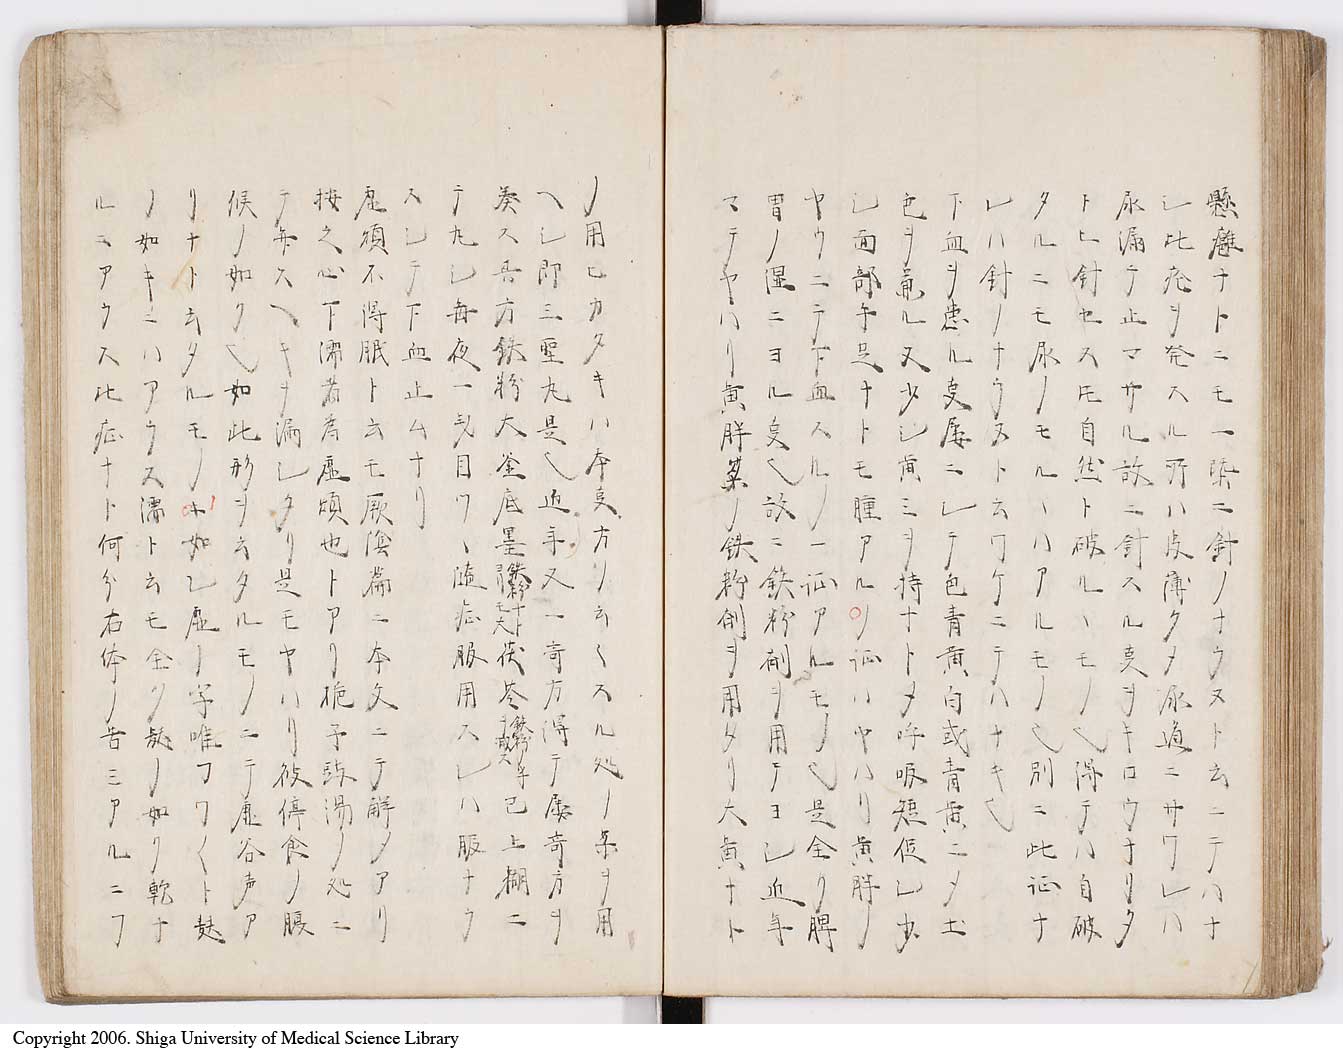 懸癰ナトニモ一槩ニ針ノナウヌト云ニテハナ
シ此症ヲ発スル所ハ皮薄クタ尿道ニサワレハ
尿漏テ止マサル故ニ針スル𫝆ヲキロウナリタ
トヒ針セス𪜈自然ト破ルヽモノ也得テハ自破
タルニモ尿ノモルヽハアルモノ也別ニ此証ナ
レハ針ノナウヌト云ワケニテハナキ也
下血ヲ患ル𫝆屡ニシテ色青黄白或青黄ニタ土
色ヲ兼ル又少シ黄ミヲ持ナトタ呼吸短促シ少
シ面部手足ナトモ腫アルノ証ハヤハリ黄胖ノ
ヤウニテ下血スルノ一証アルモノ也是全ク脾
胃ノ湿ニヨル𫝆也故ニ鉄粉剤ヲ用テヨシ近年
マテヤハリ黄胖薬ノ鉄粉剤ヲ用タリ大黄ナト
ノ用ヒカタキハ本𫝆方ノ云々スル処ノ薬ヲ用
ヘシ即三聖丸是也近年又一奇方得テ屡奇方ヲ
奏ス其方鉄粉大釜底墨茯苓已上糊ニ
テ丸シ毎夜一匁目ツヽ随症服用スレハ服ナウ
スシテ下血止ムナリ
虚煩不得眠ト云モ厥陰篇ニ本文ニテ解タアリ
按之心下濡者為虚煩也トアリ梔子豉湯ノ処ニ
テ毎スヘキヲ漏シタリ是モヤハリ彼停食ノ脹
候ノ如ク也如此形ヲ云タルモノニテ虚谷声ア
リナト云タルモノヽ如シ虚ノ字唯フワ〱ト鼓
ノ如キニハアウス濡ト云モ全ク鼓ノ如ク乾ナ
ルニアウス此症ナト何分右体ノ苦ミアルニフ